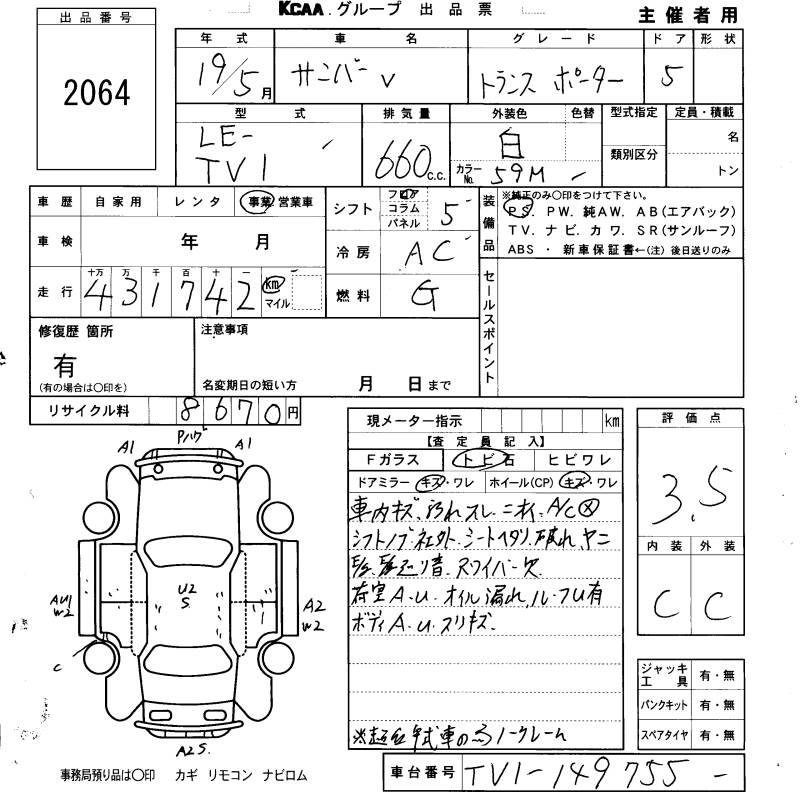 KCAA.グループ 出品票
主催者用
出品番号
2064
年式 車名 グレード ドア 形状
19/5月 サンバー V トランスポーター 5
型式 排気量 外装色 色替 型式指定 定員・積載
LE-
TV1
660 C.C.
白
カラーNo. 59M -
類別区分
名
トン
車歴 自家用 レンタ 事業 営業車
シフト フロア コラム パネル 5
装備品
※純正のみ○印をつけて下さい。
PS. PW. 純AW. AB(エアバック)
TV. ナビ. カワ. SR(サンルーフ)
ABS ・ 新車保証書←(注) 後日送りのみ
車検 年 月
冷房 AC
走行 十万 万 千 百 十 一
431742 km マイル
燃料 G
セールスポイント
修復歴 箇所
有
(有の場合は○印を)
注意事項
名変期日の短い方 月 日まで
リサイクル料 8670円
現メーター指示 km
【査定員記入】
Fガラス トビ石 ヒビワレ
ドアミラー キズ・ワレ ホイール(CP) キズ・ワレ
車内キズ. 汚れ スレ. ニオイ. A/C
シフトノブ社外. シートヘタリ. 破れ. ヤニ
荷室A.U. オイル漏れ. ルーフU有
ボディA.U.スリキズ.
ノークレーム
評価点
3.5
内装 外装
C C
ジャッキ工具 有・無
パンクキット 有・無
スペアタイヤ 有・無
A1
A1
U2
S
AU1
W2
A2
W2
C
A2S.
事務局預り品は○印 カギ リモコン ナビロム
車台番号 TV1-149755 -